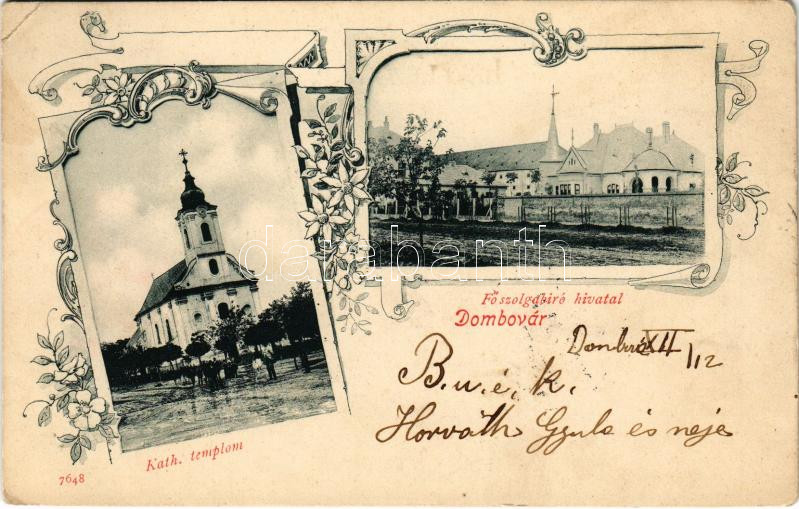 Főszolgabiró hivatal
Dombovár
XII/12
B. u. é. k.
Horváth Gyula és neje
Kath. templom
7648
darabanth.com